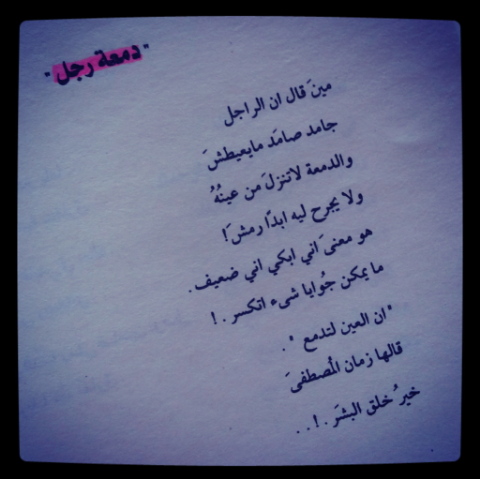 "دمعة رجل"
مينَ قال ان الراجل
جامد صامَد مايعيطشَ
والدمعة لاتنزلَ من عينُهُ
ولا يجرح ليه ابدًا رمشَ!
هو معنىَ اني ابكي اني ضعيف.
ما يمكن جُوايا شىء اتكسر.!
"ان العين لتدمع".
قالها زمان المُصطفىَ
خيرُ خلق البشَر.!..